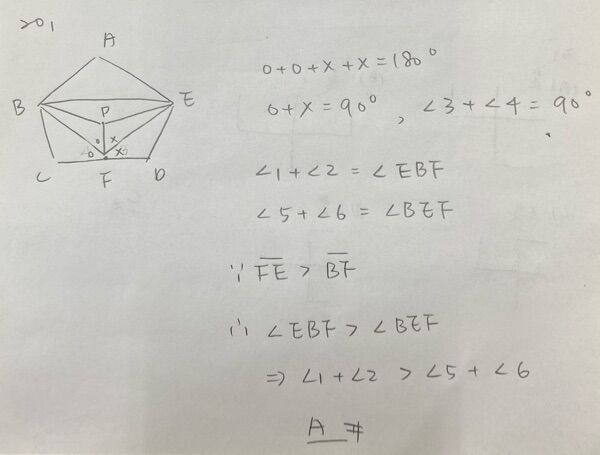 201
A
B
E
P
o x
o x
C
F
D
o+o+x+x=180°
o+x=90°, ∠3+∠4=90°
∠1+∠2=∠EBF
∠5+∠6=∠BEF
∵ FE > BF
∴ ∠EBF>∠BEF
⇒ ∠1+∠2>∠5+∠6
A #